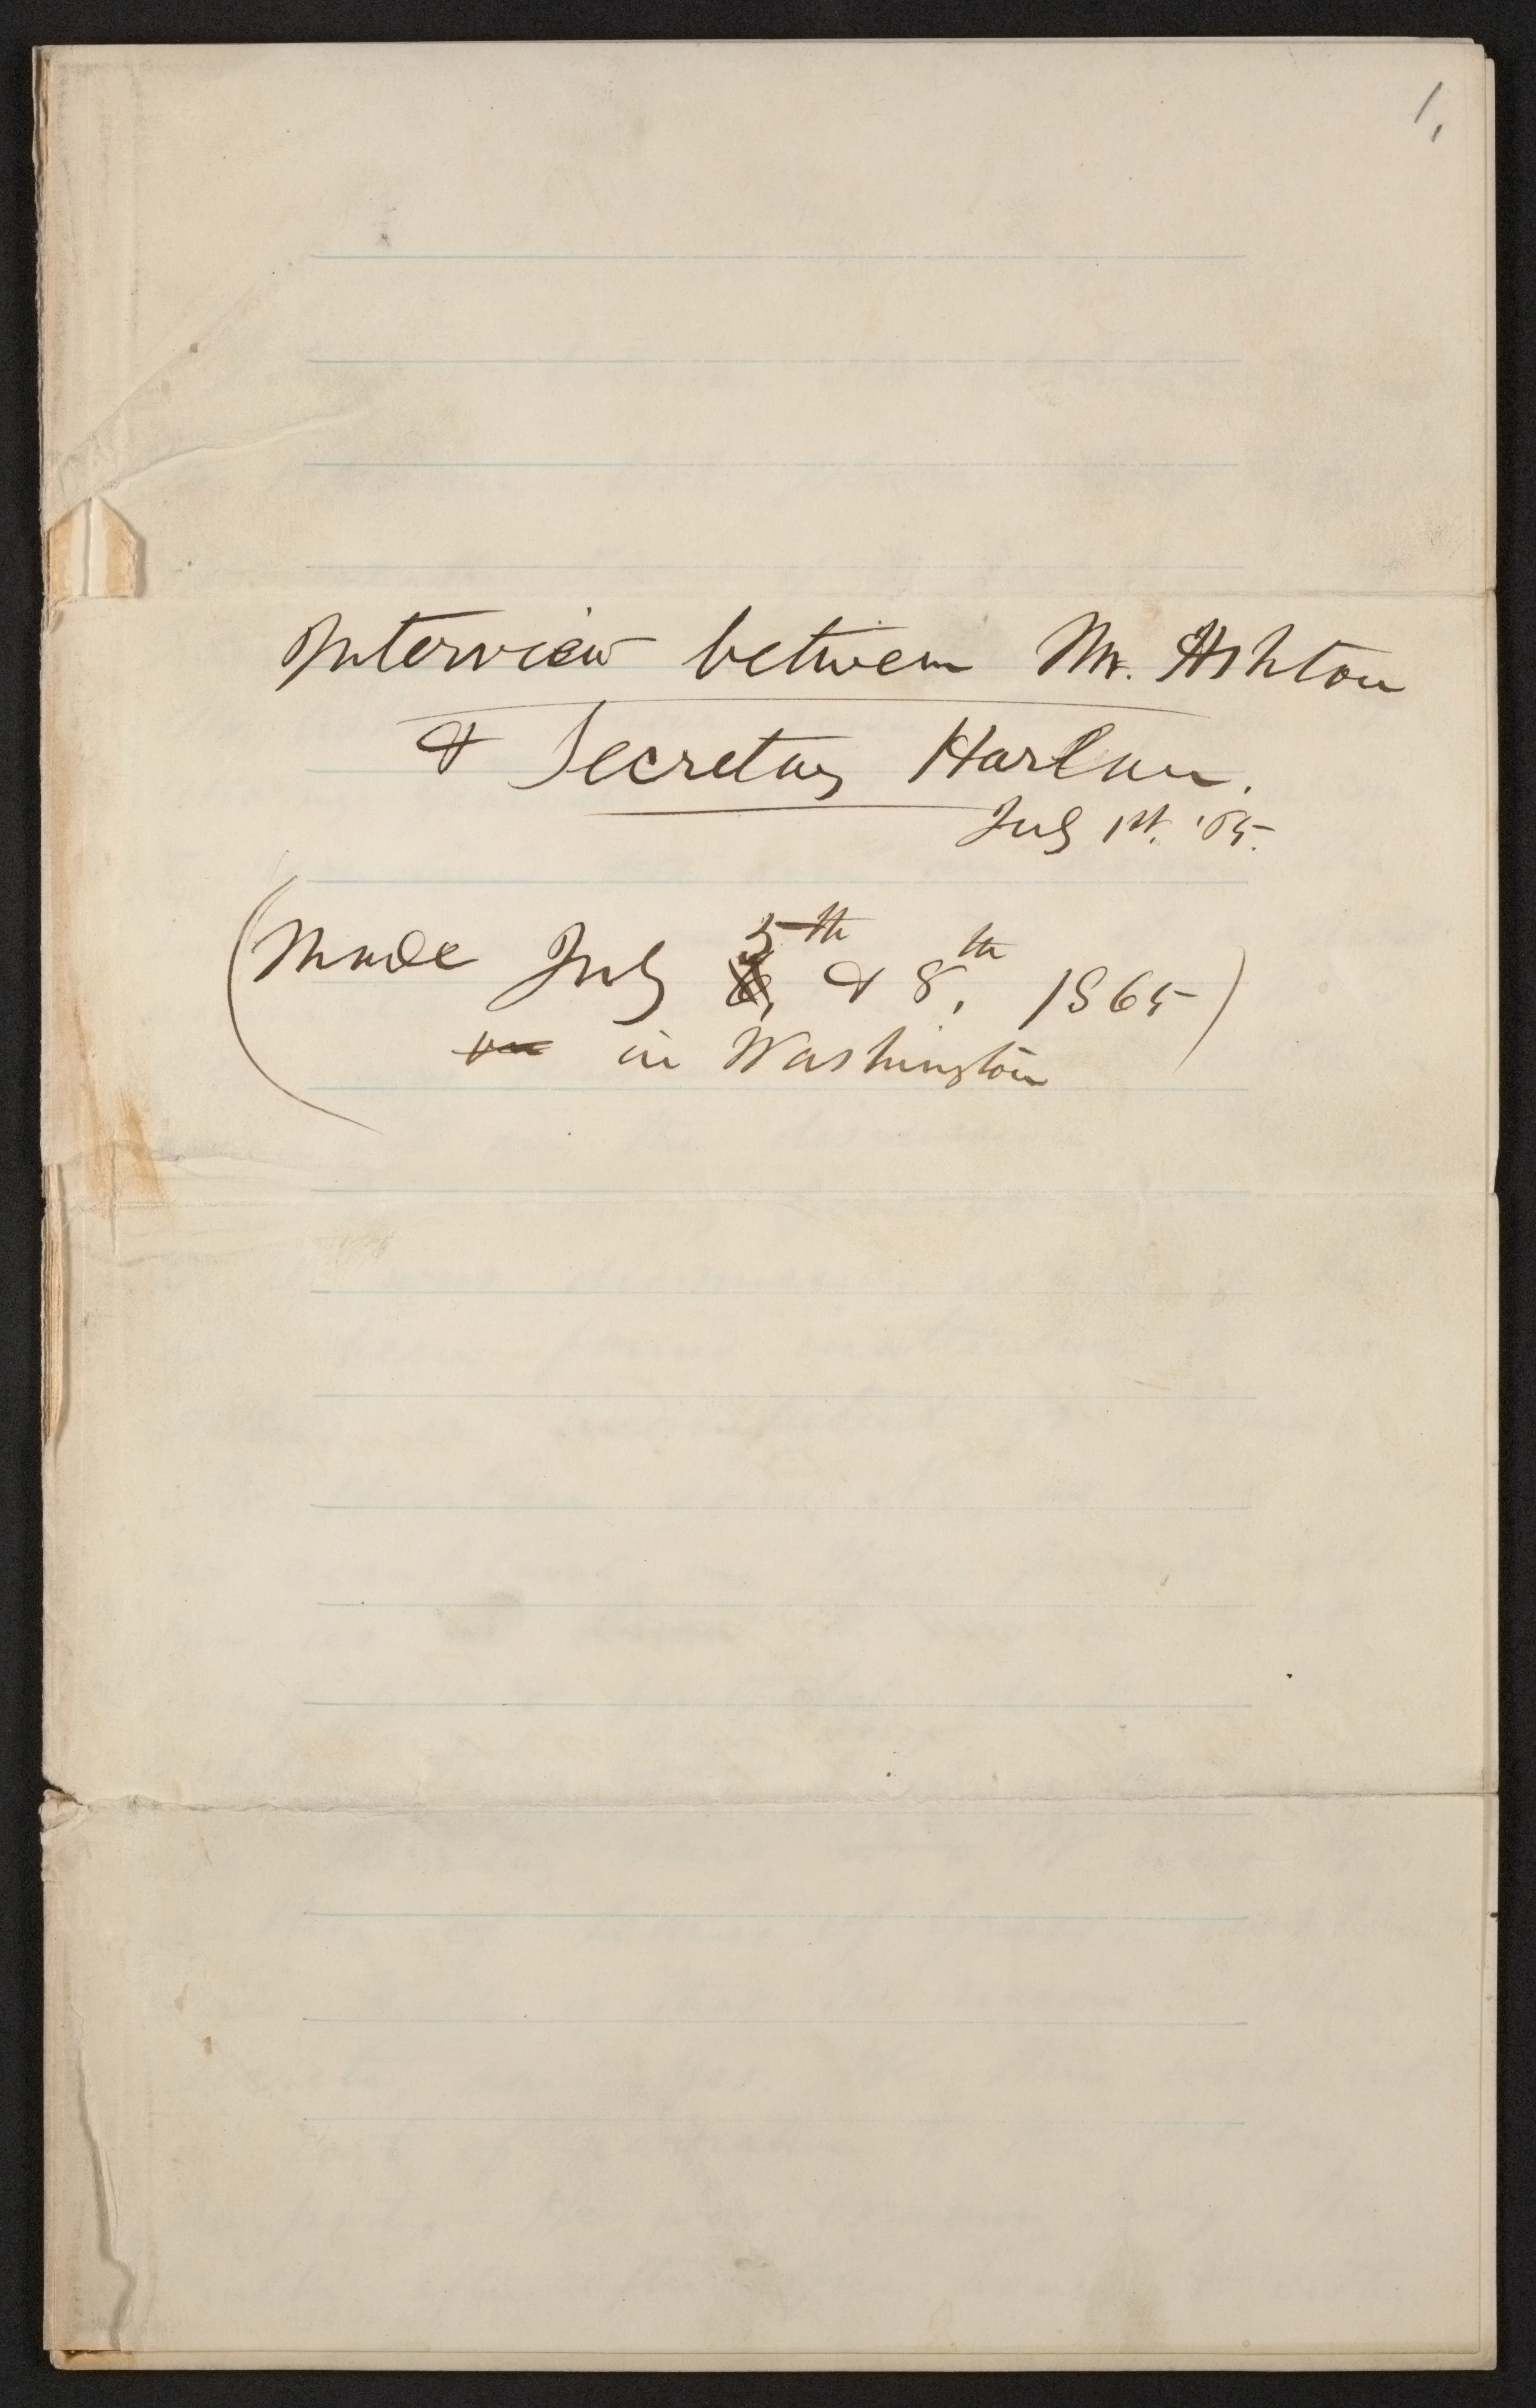 1,
Interview between Mr. Ashton
& Secretary Harlan.
July 1st. '65.
(Made July 5th & 8th, 1865)
in Washington